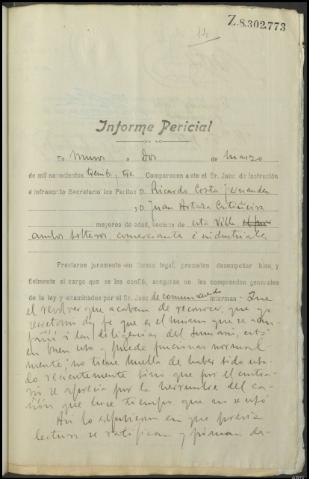 Z.8.302.773
14
Informe Pericial
En Muros a Dos de Marzo
de mil novecientos treinta y tres Comparecen ante el Sr. Juez de Instrucción
e infrascrito Secretario los Peritos D. Ricardo Costa Fernandez
y D. Juan Artaza
mayores de edad, vecinos de esta Villa
ambos solteros comerciante é industrial
Prestaron juramento en forma legal, prometen desempeñar bien y
fielmente el cargo que se les confía, aseguran no les comprenden generales
de la ley y examinados por el Sr. Juez de comun acuerdo informan: Que
el revolver que acaban de reconocer, que yo
secretario doy fe que es el mismo que se
á las diligencias del sumario, está
en buen uso y puede funcionar normal
mente; no tiene huella de haber sido usa-
do recientemente sino que por el contra-
rio se aprecia por la herrumbre del ca-
ñón que hace tiempo que no se usó
Así lo expusieron en que previa
lectura se ratifican y firman de-